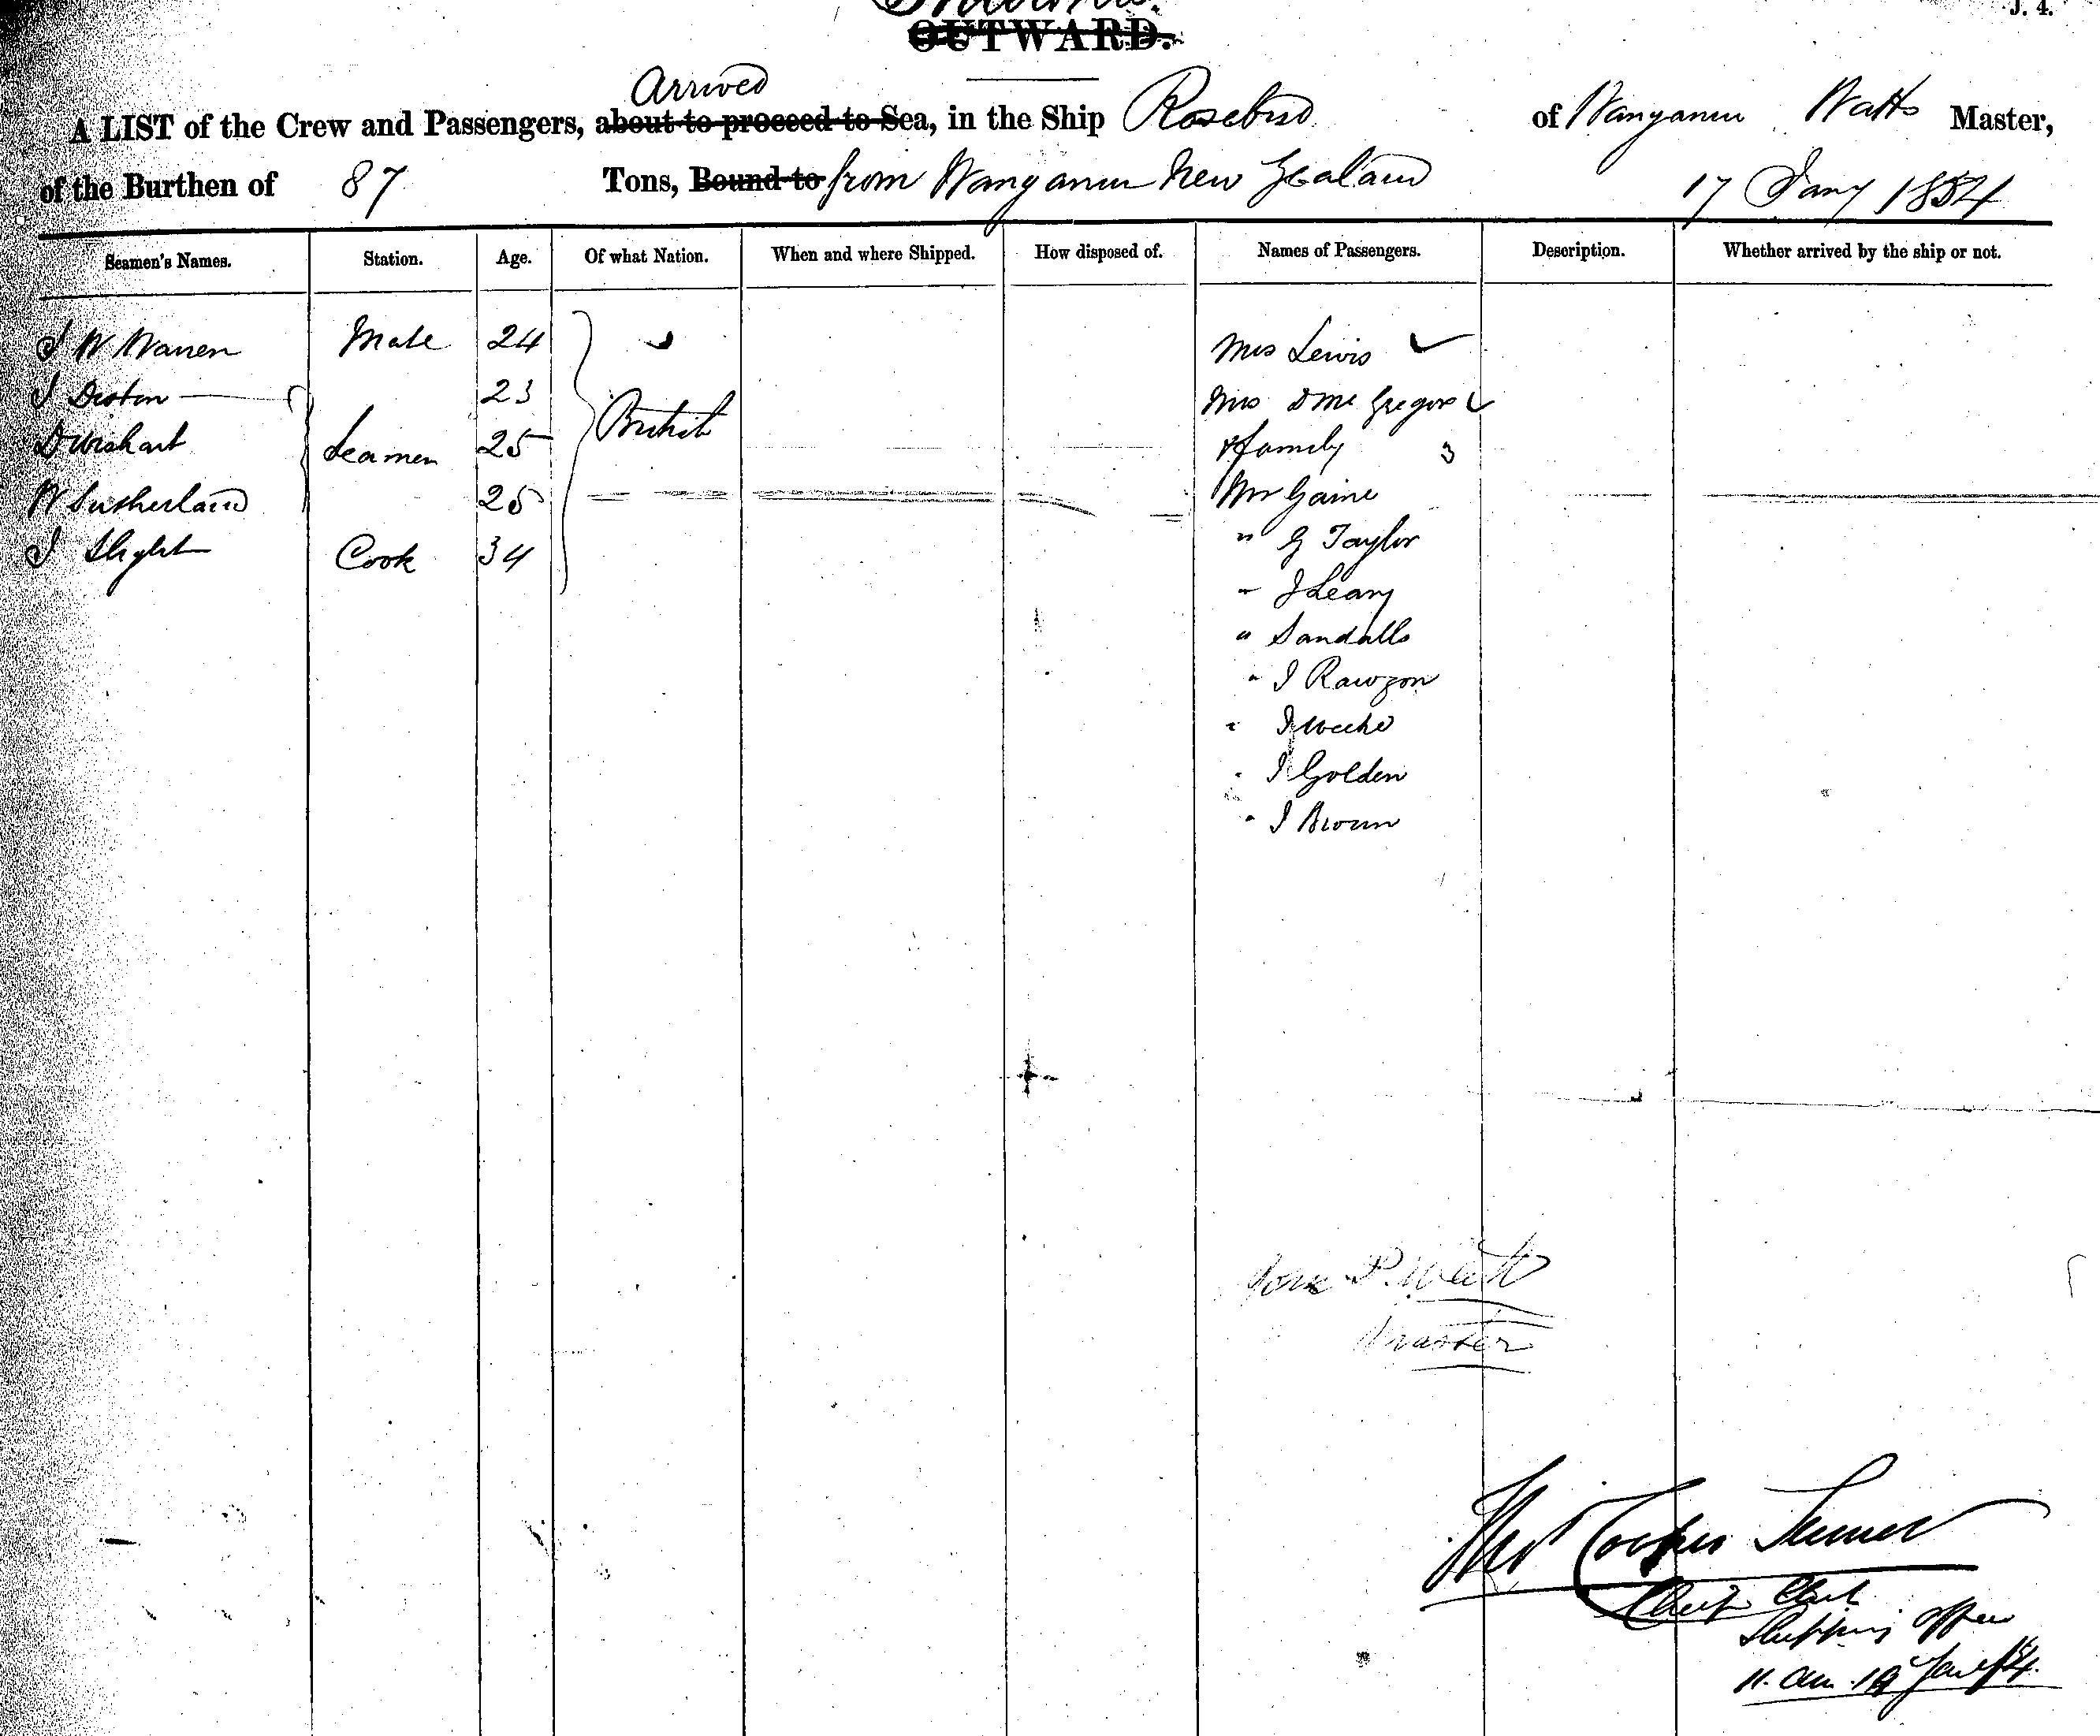 Inwards.
OUTWARD.
J. 4.
Arrived
A LIST of the Crew and Passengers, about to proceed to Sea, in the Ship Rosebud of Wanganui Watts Master,
of the Burthen of 87 Tons, Bound to from Wanganui New Zealand 17 Jany 1854
Seamen's Names. Station. Age. Of what Nation. When and where Shipped. How disposed of. Names of Passengers. Description. Whether arrived by the ship or not.
J W Warren Mate 24 Mrs Lewis
J Diston 23 Mrs D McGregor
D Wishart Seamen 25 British & family 3
W Sutherland 25 Mr Gaine
J Slight Cook 34 " G Taylor
" J Leary
" Sandalls
" J Rawson
" J Weeks
" J Golden
" J Brown
P. Watt
Master
Thos Cooper
Chief Clerk
Shipping Office
11. am. 19 Jany